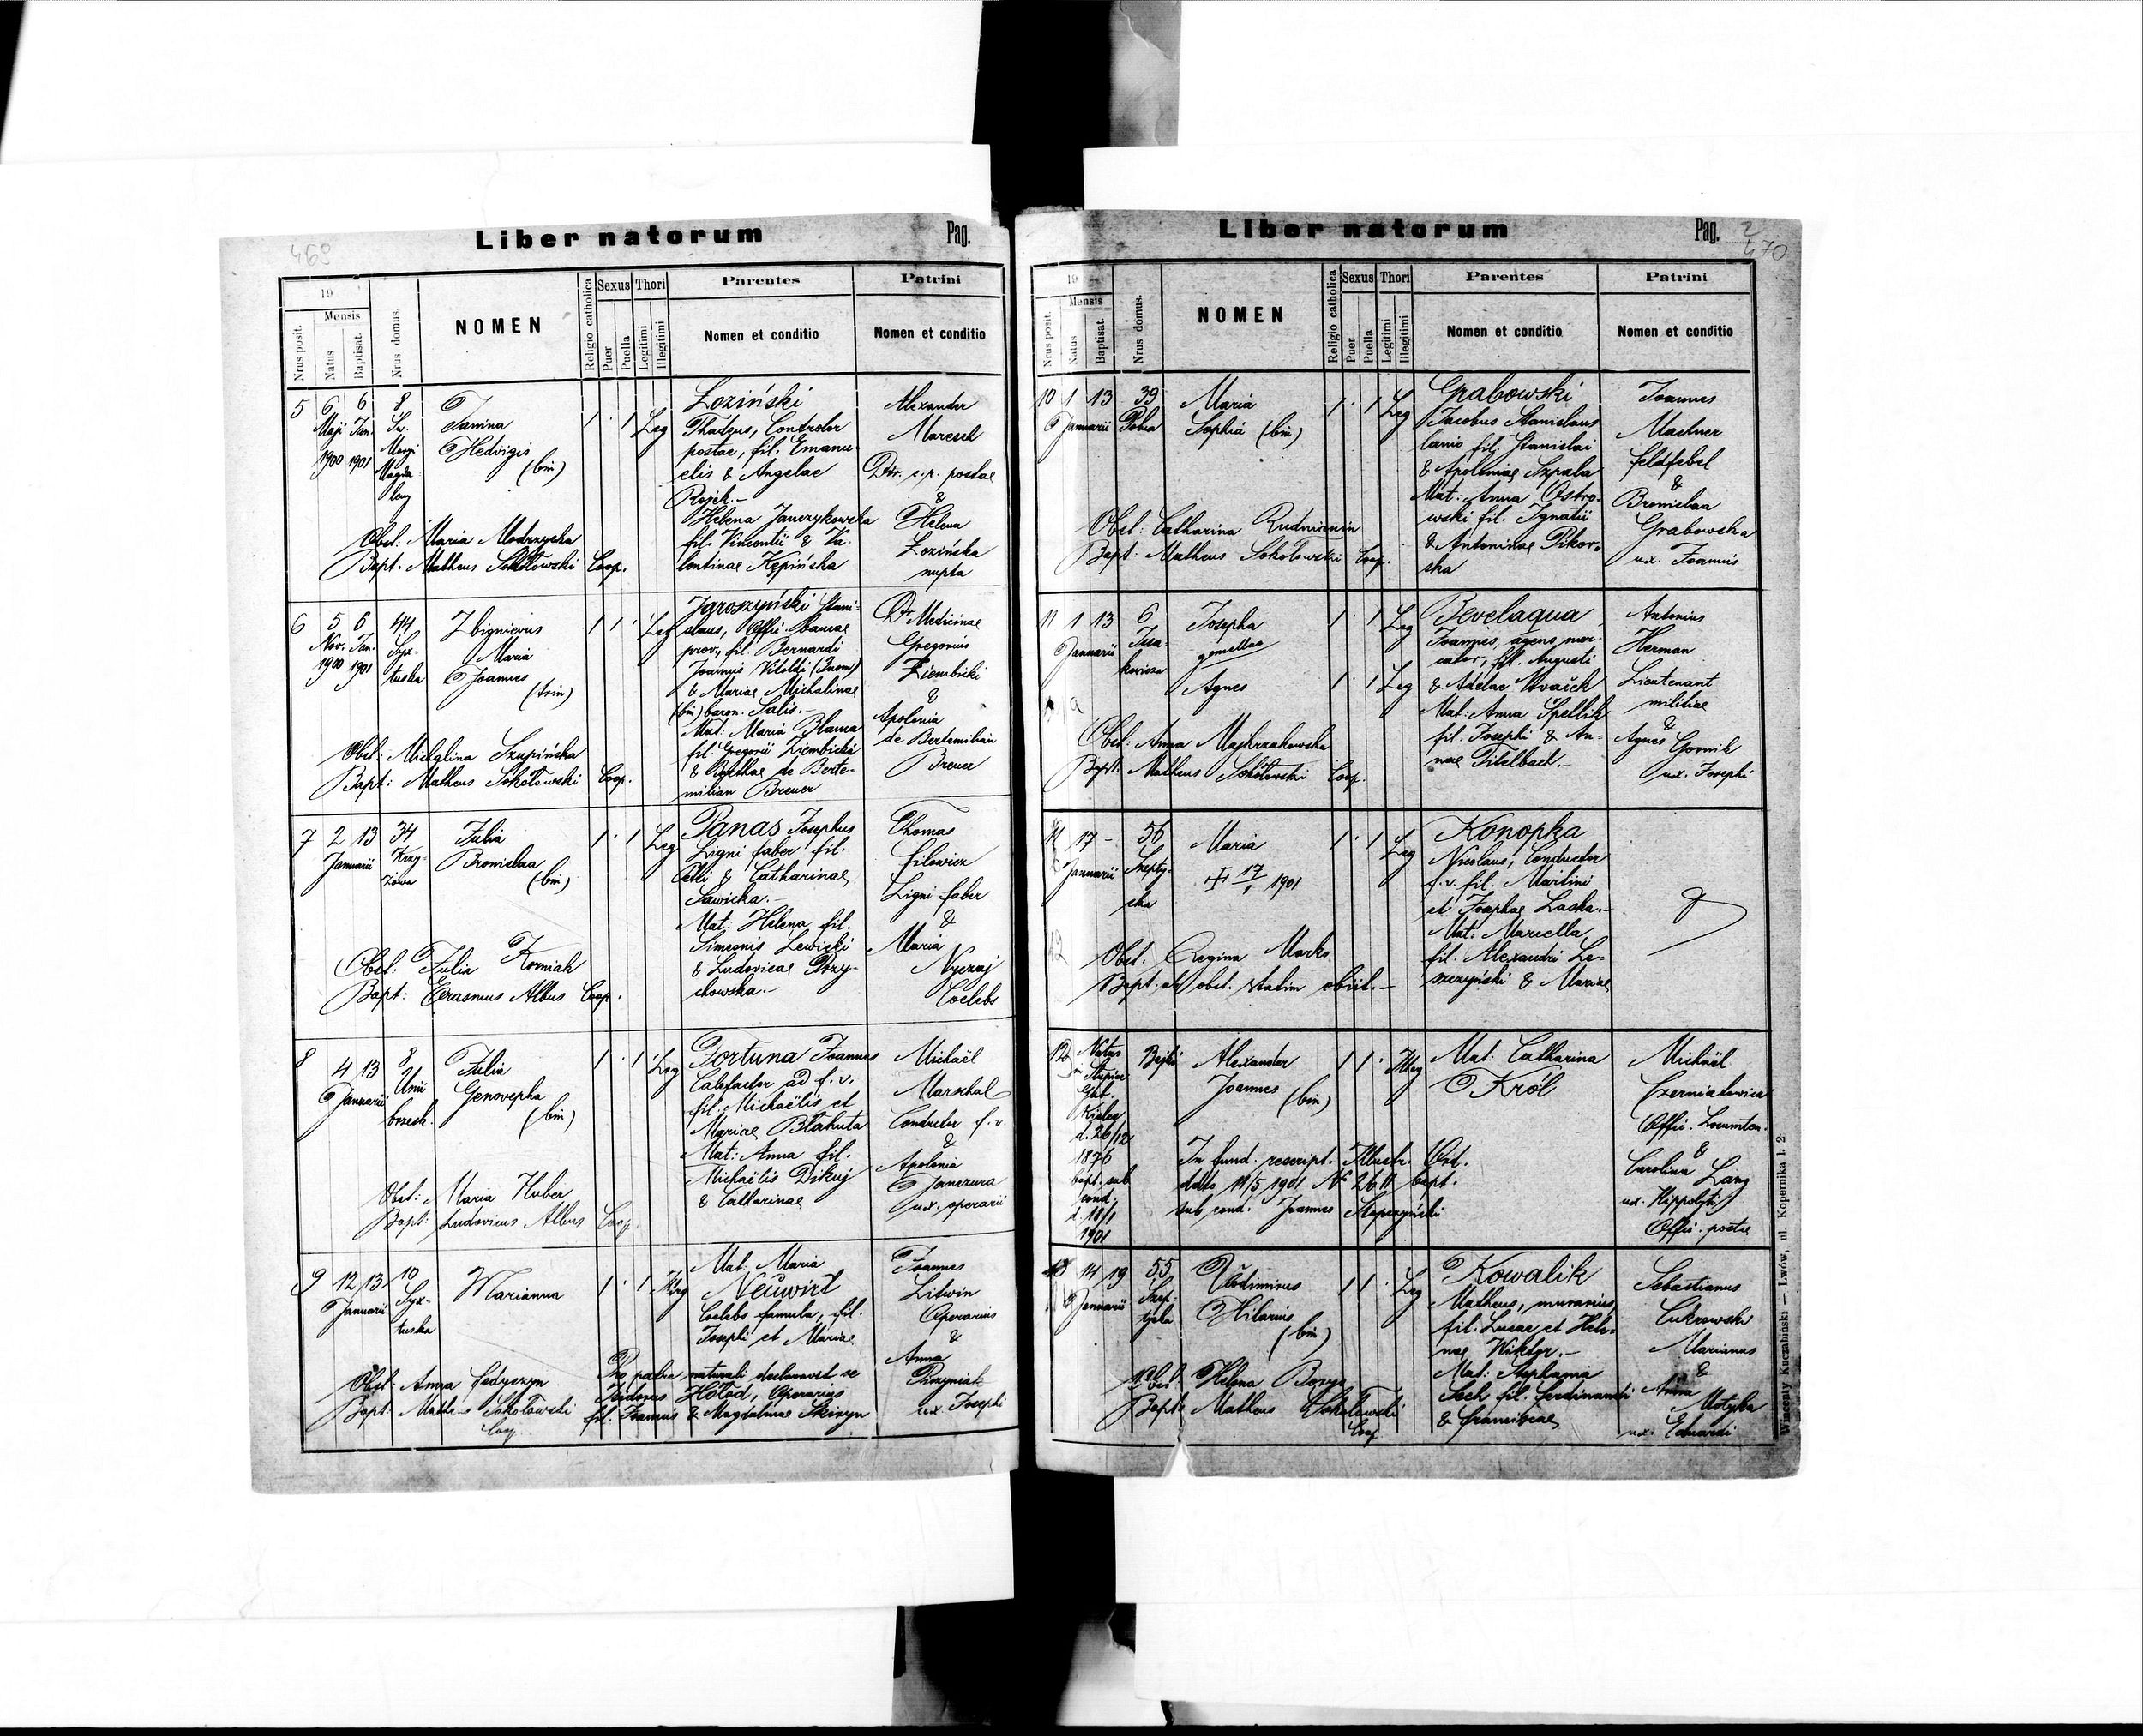 469
Liber natorum
Pag.
19
Mensis
Nrus posit.
Natus
Baptisat.
Nrus domus.
NOMEN
Religio catholica
Sexus
Puer
Puella
Thori
Legitimi
Illegitimi
Parentes
Nomen et conditio
Patrini
Nomen et conditio
5
6 6 8
Maji Jan. Św.
1900 1901 Maryi
Magda
leny
Janina
Hedvigis
(bin)
1 · 1 Leg
Łoziński
Thadeus, Controlor
postae, fil. Emanu
elis & Angelae
Rojek.-
Helena Janczykowska
fil. Vincentii & Va.
lentinae Kępińska
Alexander
Maresch
Dir. c.r. postae
&
Helena
Łozińska
nupta
Obst: Maria Modrzycka
Bapt. Matheus Sokołowski Coop.
6
5 6 44
Nov. Jan. Syx-
1900 1901 tuska
Zbignievus
Maria
Joannes
(trin)
1 1 · Leg
Jaroszyński Stani-
slaus, Offic. bancae
prov., fil. Bernardi
Joannis Vitoldi
& Mariae Michalinae
(bin) baron. Salis.-
Mat: Maria Blanca
fil. Gregorii Ziembicki
& Berthae de Berte-
milian Breuer
Dr Medicinae
Gregorius
Ziembicki
&
Apolonia
de Bertemilian
Breuer
Obst: Michalina Szupińska
Bapt: Matheus Sokołowski Coop.
7
2 13 34
Januarii Krzy-
żowa
Julia
Bronislaa
(bin)
1 · 1 Leg
Panas Josephus
Ligni faber fil.
& Catharinae
Sawicka.-
Mat: Helena fil.
Simeonis Lewicki
& Ludovicae Przy-
chowska.-
Thomas
Filowicz
Ligni faber
&
Maria
Nyczaj
Coelebs
Obst: Julia Korniak
Bapt: Erasmus Albus Coop.
8
4 13 8
Januarii Unii
brzesk.
Julia
Genovepha
(bin)
1 · 1 Leg
Fortuna Joannes
Calefactor ad f.v.
fil. Michaëlis et
Mariae Błahuta
Mat: Anna fil.
Michaëlis Dzikuj
& Catharinae
Michaël
Marschal
Conductor f.v.
&
Apolonia
Janczura
ux. operarii
Obst: Maria Huber
Bapt: Ludovicus Albus Coop.
9
12 13 10
Januarii Syx-
tuska
Marianna
1 · 1 Illeg
Mat: Maria
Neuwirt
Coelebs famula, fil.
Josephi et Mariae
Joannes
Litwin
Operarius
&
Anna
ux. Josephi
Obst: Anna Fedyczyn
Bapt: Matheus Sokołowski
Coop.
Pro patre naturali declaravit se
Isidorus Hołod, Operarius
fil. Joannis & Magdalenae
Liber natorum
Pag. 2
470
19
Mensis
Nrus posit.
Natus
Baptisat.
Nrus domus.
NOMEN
Religio catholica
Sexus
Puer
Puella
Thori
Legitimi
Illegitimi
Parentes
Nomen et conditio
Patrini
Nomen et conditio
10 1 13 39
Januarii
Maria
Sophia (bin)
1 · 1 Leg
Grabowski
Jacobus Stanislaus
lanio fil. Stanislai
& Apoloniae Szpala
Mat: Anna Ostro-
wski fil. Ignatii
& Antoninae Pikor-
ska
Joannes
Machner
feldfebel
&
Bronislaa
Grabowska
ux. Joannis
Obst: Catharina
Bapt: Matheus Sokołowski Coop.
11 1 13 6
Januarii Issa-
kowicza
Josepha
gemellae
Agnes
1 · 1 Leg
1 · 1 Leg
Bevelaqua
Joannes, agens mer-
cator, fil. Augusti
& Adelae
Mat: Anna Spellik
fil. Josephi & An-
nae Titelbach.-
Antonius
Herman
Lieutenant
militiae
&
Agnes Gornik
ux. Josephi
Obst: Anna Majkrzakowska
Bapt: Matheus Sokołowski Coop.
17 - 56
Januarii Szepty-
cka
12
Maria
17/1 1901
1 · 1 Leg
Konopka
Nicolaus, Conductor
f.v. fil. Martini
et Josephae Laska.-
Mat: Marcella
fil. Alexandri Le-
szczyński & Mariae
Obst. Regina Marks
Bapt. ab obst. statim obiit.-
Natus
in
Gub.
d. 26/12
1876
bapt. sub
cond.
d. 18/1
1901
Alexander
Joannes (bin)
1 1 · Illeg
Mat: Catharina
Król
Michaël
Offic. Locumten.
&
Carolina Lang
ux. Hippolyti
Offic. postae
In fund. rescript. Illustr. Ord.
bapt.
sub cond. Joannes
14 19 55
Januarii Szep-
tycka
Vladimirus
Hilarius
(bin)
1 1 · Leg
Kowalik
Matheus, murarius,
fil. Lucae et Hele-
nae Wiktor.-
Mat: Stephania
Sech fil. Ferdinandi
& Franciscae
Sebastianus
Cukrowski
Marianus
&
Anna Motyka
ux. Eduardi
Obst: Helena
Bapt: Matheus Sokołowski
Coop
Wincenty Kuczabiński — Lwów, ul. Kopernika l. 2.